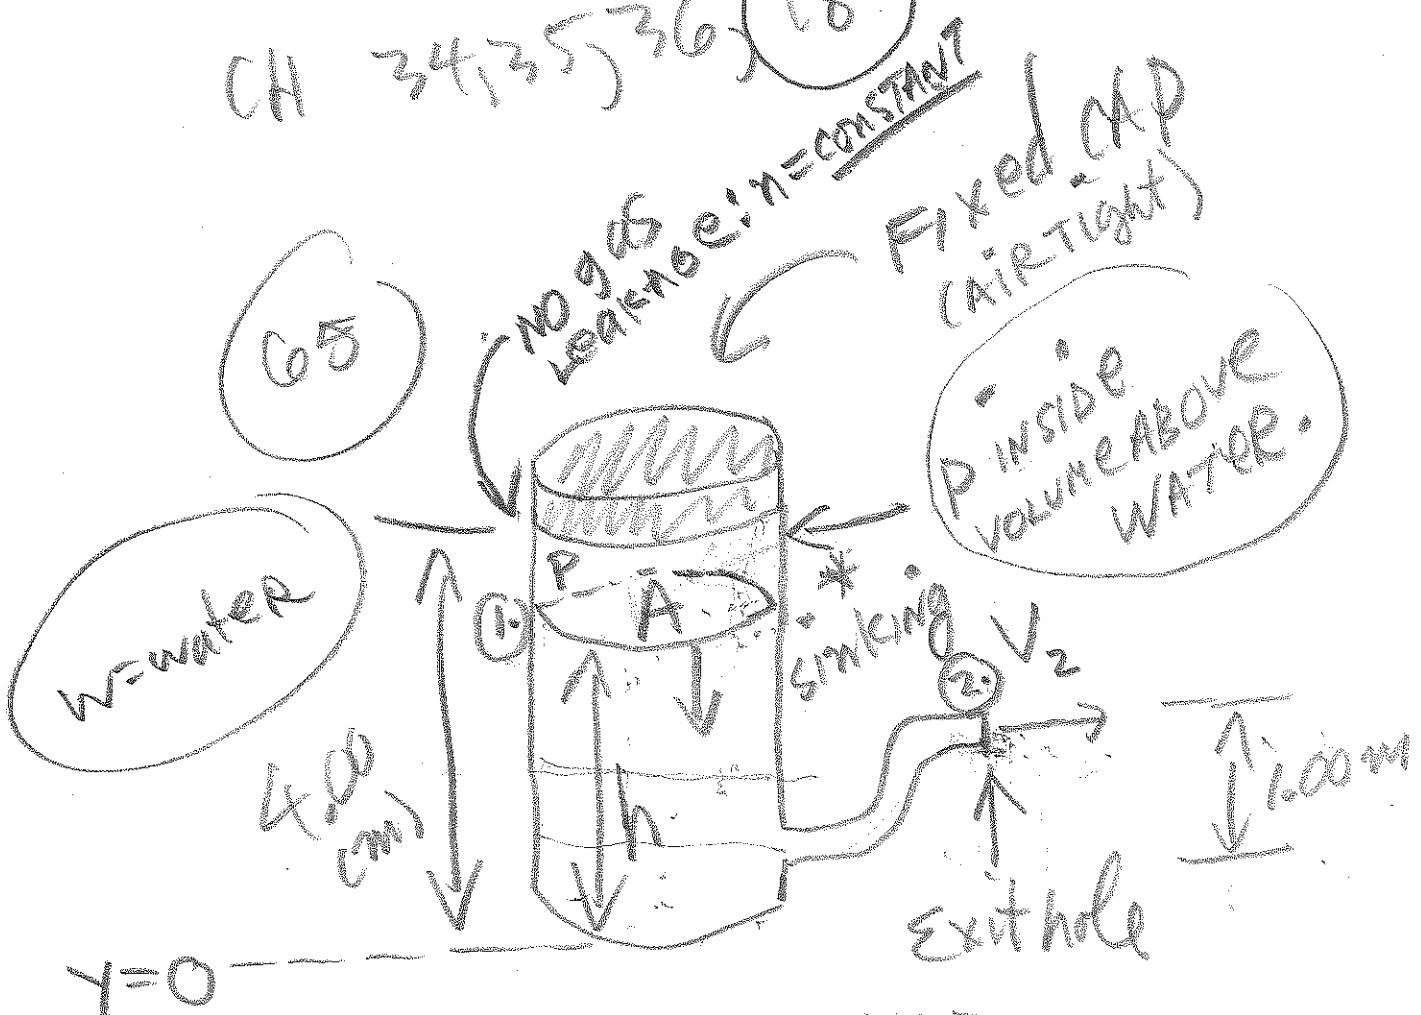 CH 34,35,36, 18
NO gas
Leakage: n=CONSTANT
Fixed CAP
(AIRTight)
65
P INSIDE
VOLUME ABOVE
WATER.
W=water
P
A
1.
* sinking
2.
V2
4.00
(m)
h
1.00 m
Exit hole
Y=0